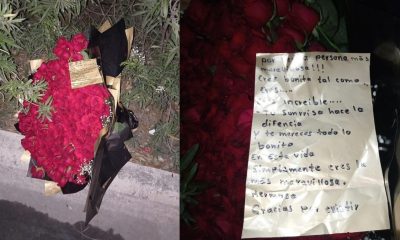 persona más
maravillosa!!!
Eres bonita tal como
eres....
increible....
tu sonrrisa hace la
difencia
y te mereces todo lo
bonito
En esta vida
simplemente eres la
más maravillosa,
Hermosa
Gracias por existir